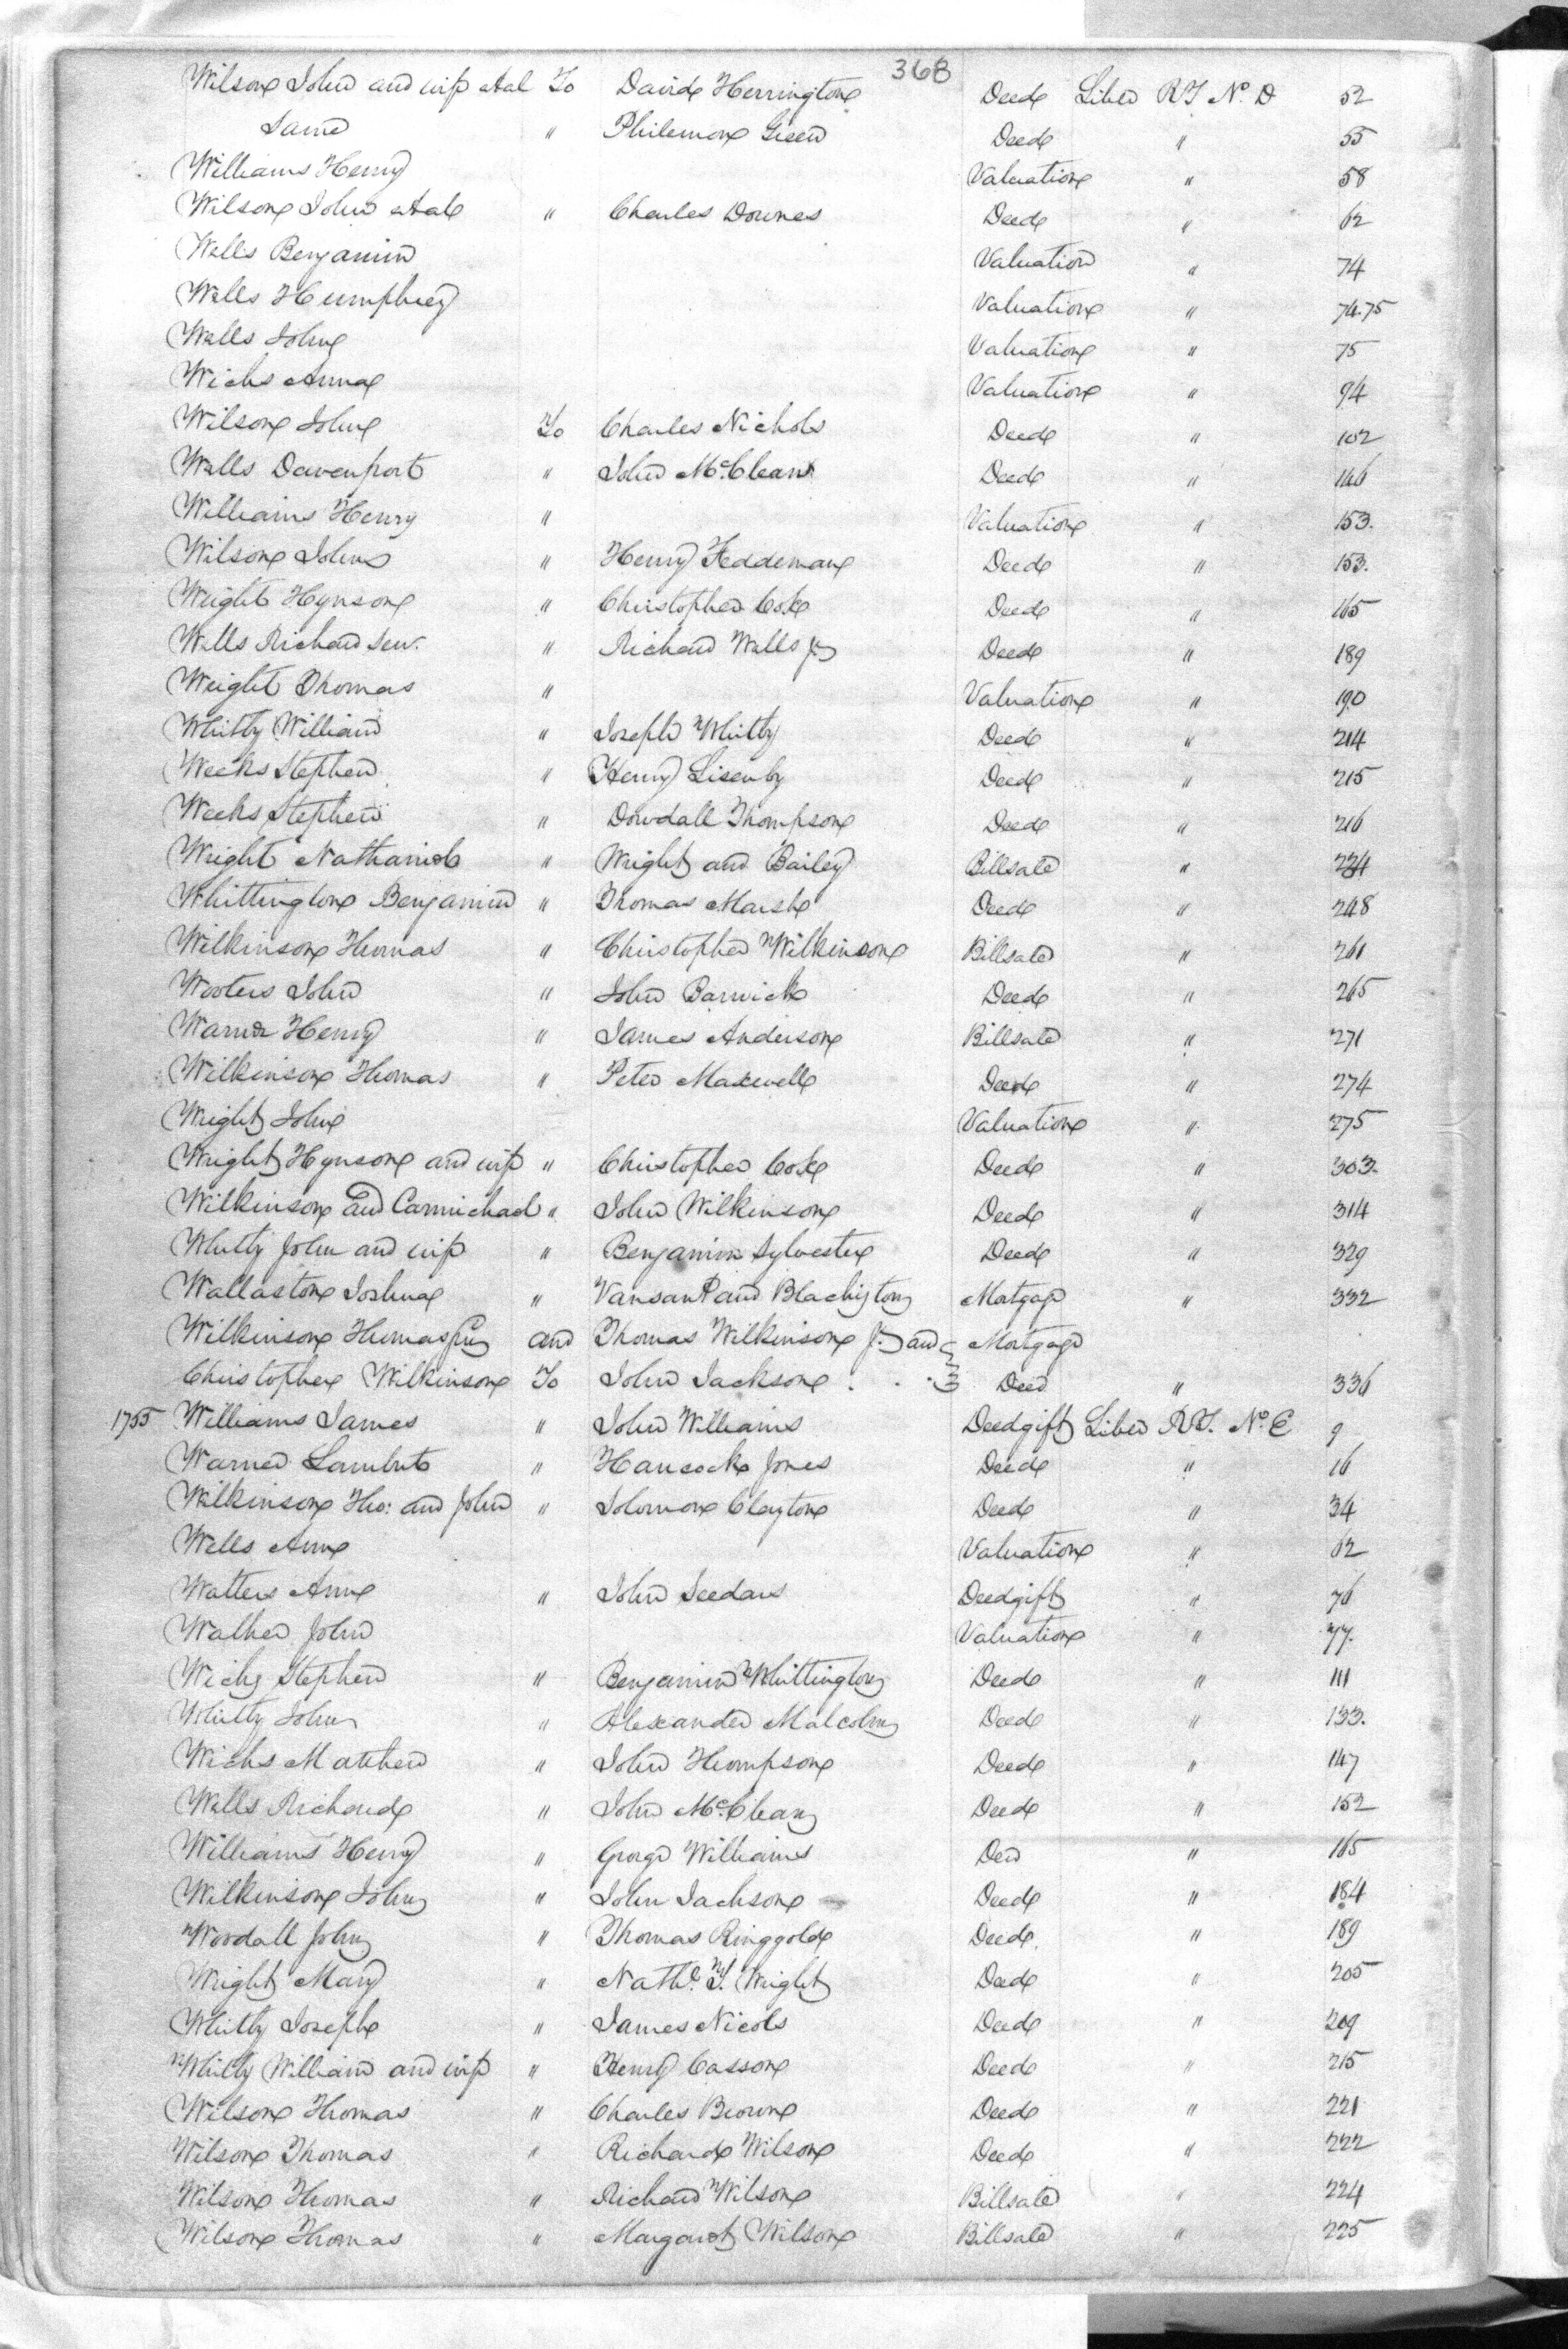 368
Wilson John and wife etal To David Herrington Deed Liber RT No. D 52
Same " Philemon Green Deed " 55
Williams Henry Valuation " 58
Wilson John etal " Charles Downes Deed " 62
Wells Benjamin Valuation " 74
Wells Humphrey Valuation " 74.75
Wells John Valuation " 75
Wicks Anna Valuation " 94
Wilson John To Charles Nichols Deed " 102
Walls Davenport " John McClean Deed " 146
Williams Henry " Valuation " 153.
Wilson John " Henry Feddeman Deed " 153.
Wright Hynson " Christopher Coxe Deed " 165
Walls Richard Sen. " Richard Walls Jr Deed " 189
Wright Thomas " Valuation " 190
Whitty William " Joseph Whitty Deed " 214
Weeks Stephen " Henry Lisenby Deed " 215
Weeks Stephen " Dowdall Thompson Deed " 216
Wright Nathaniel " Wright and Bailey Billsale " 234
Whittington Benjamin " Thomas Marsh Deed " 248
Wilkinson Thomas " Christopher Wilkinson Billsale " 261
Wooters John " John Barwick Deed " 265
Warner Henry " James Anderson Billsale " 271
Wilkinson Thomas " Peter Maxwell Deed " 274
Wright John Valuation " 275
Wright Hynson and wife " Christopher Coxe Deed " 303.
Wilkinson and Carmichael " John Wilkinson Deed " 314
Whitty John and wife " Benjamin Sylvester Deed " 329
Wallaston Joshua " Vansant and Blachiston Mortgage " 332
Wilkinson Thomas and Thomas Wilkinson Jr and Mortgage
Christopher Wilkinson To John Jackson . . . Deed " 336
1755 Williams James " John Williams Deedgift Liber RT. No. E 9
Warner Lambert " Hancock Jones Deed " 16
Wilkinson Tho: and John " Solomon Clayton Deed " 34
Wells Ann Valuation " 62
Watters Ann " John Seedars Deedgift " 76
Walker John Valuation " 77.
Wicks Stephen " Benjamin Whittington Deed " 111
Whitty John " Alexander Malcolm Deed " 133.
Wicks Mathew " John Thompson Deed " 147
Walls Richard " John McClean Deed " 152
Williams Henry " George Williams Deed " 165
Wilkinson John " John Jackson Deed " 184
Woodall John " Thomas Ringgold Deed " 189
Wright Mary " Nathl. T. Wright Deed " 205
Whitty Joseph " James Nicols Deed " 209
Whitty William and wife " Henry Casson Deed " 215
Wilson Thomas " Charles Brown Deed " 221
Wilson Thomas " Richard Wilson Deed " 222
Wilson Thomas " Richard Wilson Billsale " 224
Wilson Thomas " Margaret Wilson Billsale " 225